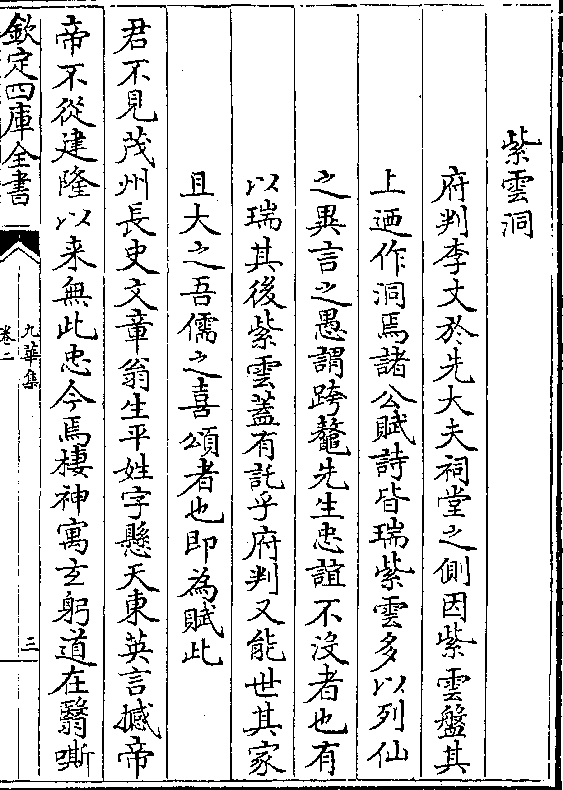 紫雲洞
府判李丈於先大夫祠堂之側因紫雲盤其
上廼作洞焉諸公賦詩皆瑞紫雲多以列仙
之異言之愚謂跨鼇先生忠誼不没者也有
以瑞其後紫雲蓋有託乎府判又能世其家
且大之吾儒之喜頌者也即為賦此
君不見茂州長史文章翁生平姓字懸天東英言撼帝
帝不從建隆以来無此忠今焉棲神寓玄躬道在翳嘶
欽定四庫全書
九華集
卷二
三